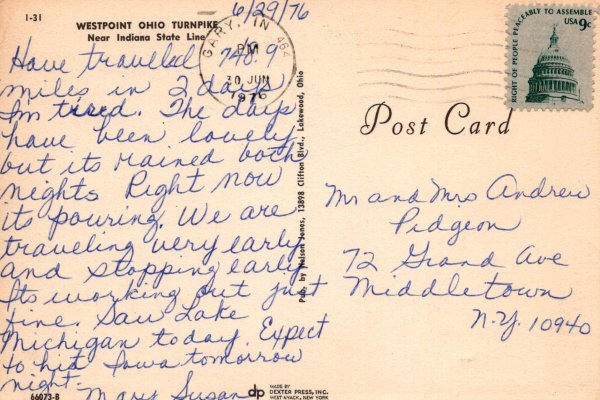 1-31
WESTPOINT OHIO TURNPIKE
Near Indiana State Line
6/29/76
GARY, IN 464
PM
30 JUN
1976
RIGHT OF PEOPLE PEACEABLY TO ASSEMBLE
USA 9c
Post Card
Have travelled 748.9
miles in 2 days
Im tired. The days
have been lovely
but its rained both
nights Right now
its pouring. We are
traveling very early
and stopping early
Its working out just
fine. Saw Lake
Michigan today. Expect
to hit Iowa tomorrow
night.
Mary Susan
Mr and Mrs Andrew
Pidgeon
72 Grand Ave
Middletown
N.Y. 10940
Pub. by Nelson Jones, 13898 Clifton Blvd., Lakewood, Ohio
66073-B
dp
MADE BY
DEXTER PRESS, INC.
WEST NYACK, NEW YORK